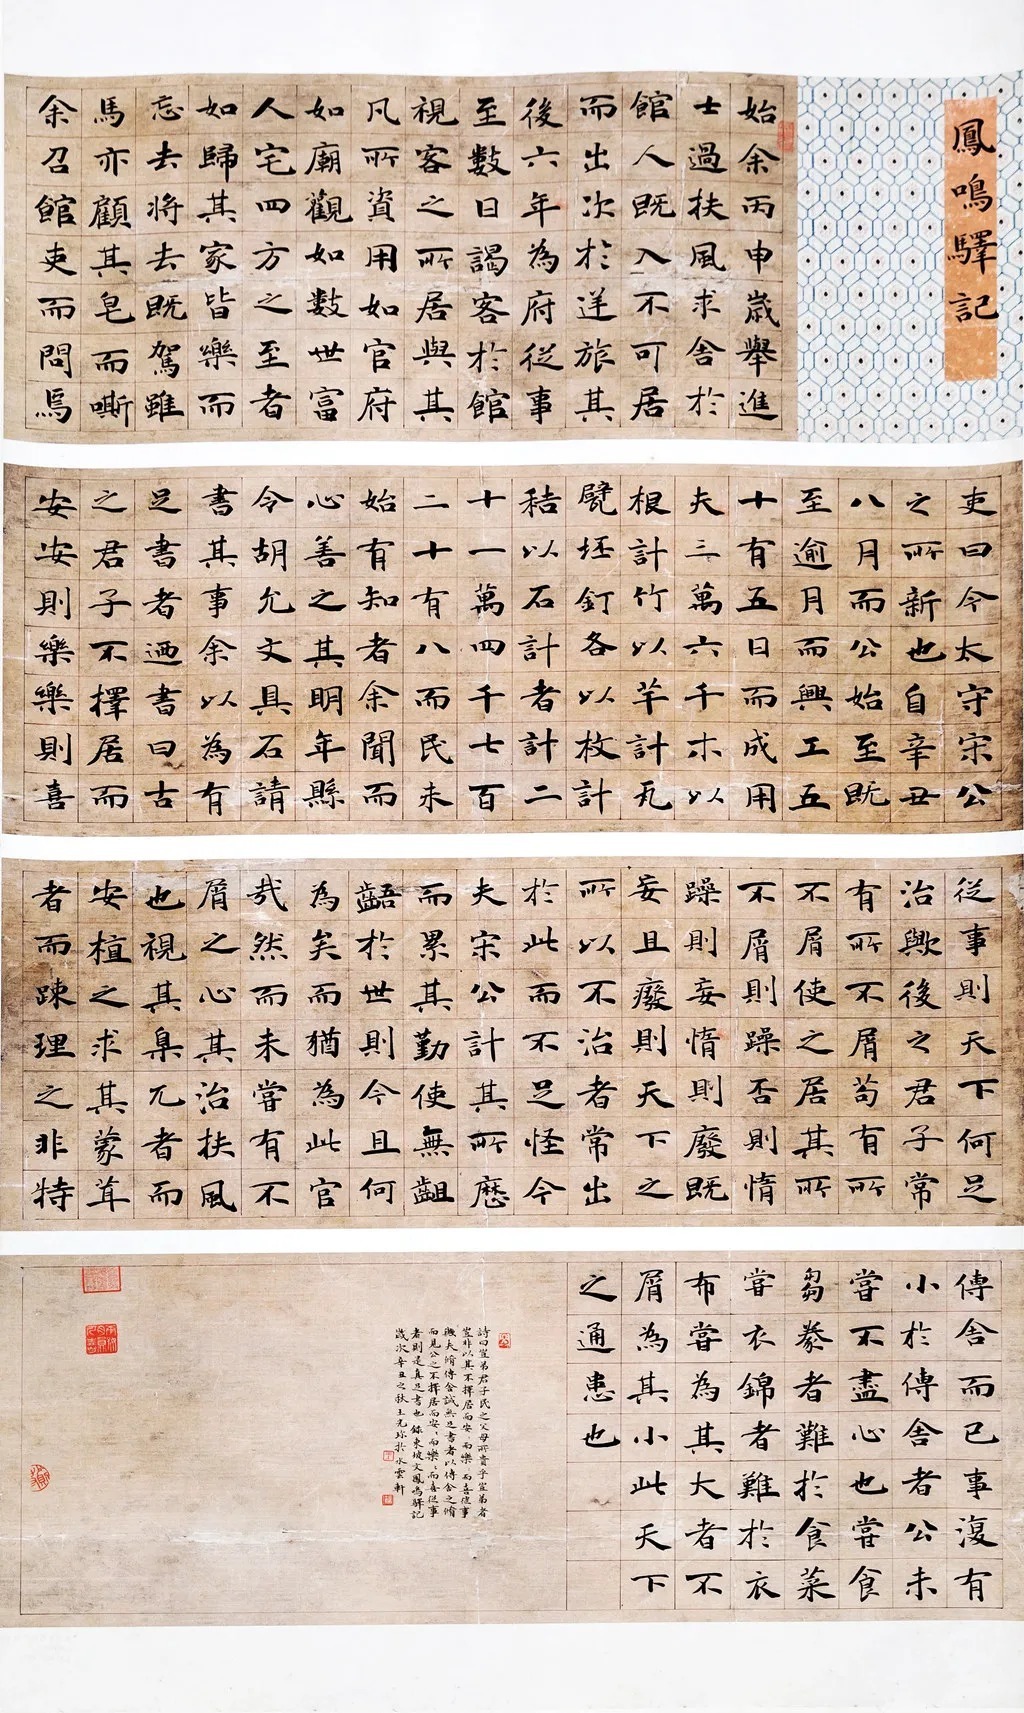 鳳鳴驛記
始余丙申歲舉進
士過扶風求舍於
館人既入不可居
而出次於逆旅其
後六年為府從事
至數日謁客於館
視客之所居與其
凡所資用如官府
如廟觀如數世富
人宅四方之至者
如歸其家皆樂而
忘去將去既駕雖
馬亦顧其皂而嘶
余召館吏而問焉
吏曰今太守宋公
之所新也自辛丑
八月而公始至既
至逾月而興工五
十有五日而成用
夫三萬六千木以
根計竹以竿計瓦
甓坯釘各以枚計
秸以石計者計二
十一萬四千七百
二十有八而民未
始有知者余聞而
心善之其明年縣
令胡允文具石請
書其事余以為有
足書者迺書曰古
之君子不擇居而
安安則樂樂則喜
從事則天下何足
治歟後之君子常
有所不屑苟有所
不屑使之居其所
不屑則躁否則惰
躁則妄惰則廢既
妄且廢則天下之
所以不治者常出
於此而不足怪今
夫宋公計其所歷
而累其勤使無齟
齬於世則今且何
為矣而猶為此官
哉然而未嘗有不
屑之心其治扶風
也視其臬兀者而
安植之求其蒙茸
者而疎理之非特
傳舍而已事復有
小於傳舍者公未
嘗不盡心也嘗食
芻豢者難於食菜
嘗衣錦者難於衣
布嘗為其大者不
屑為其小此天下
之通患也
詩曰豈弟君子民之父母所貴乎豈弟者
豈非以其不擇居而安、而樂、而喜從事
歟夫脩傳舍誠無足書者以傳舍之脩
而見公之不擇居而安、而樂、而喜從事
者則是真足書也 錄東坡文鳳鳴驛記
歲次辛丑之秋王元珎於水雲軒